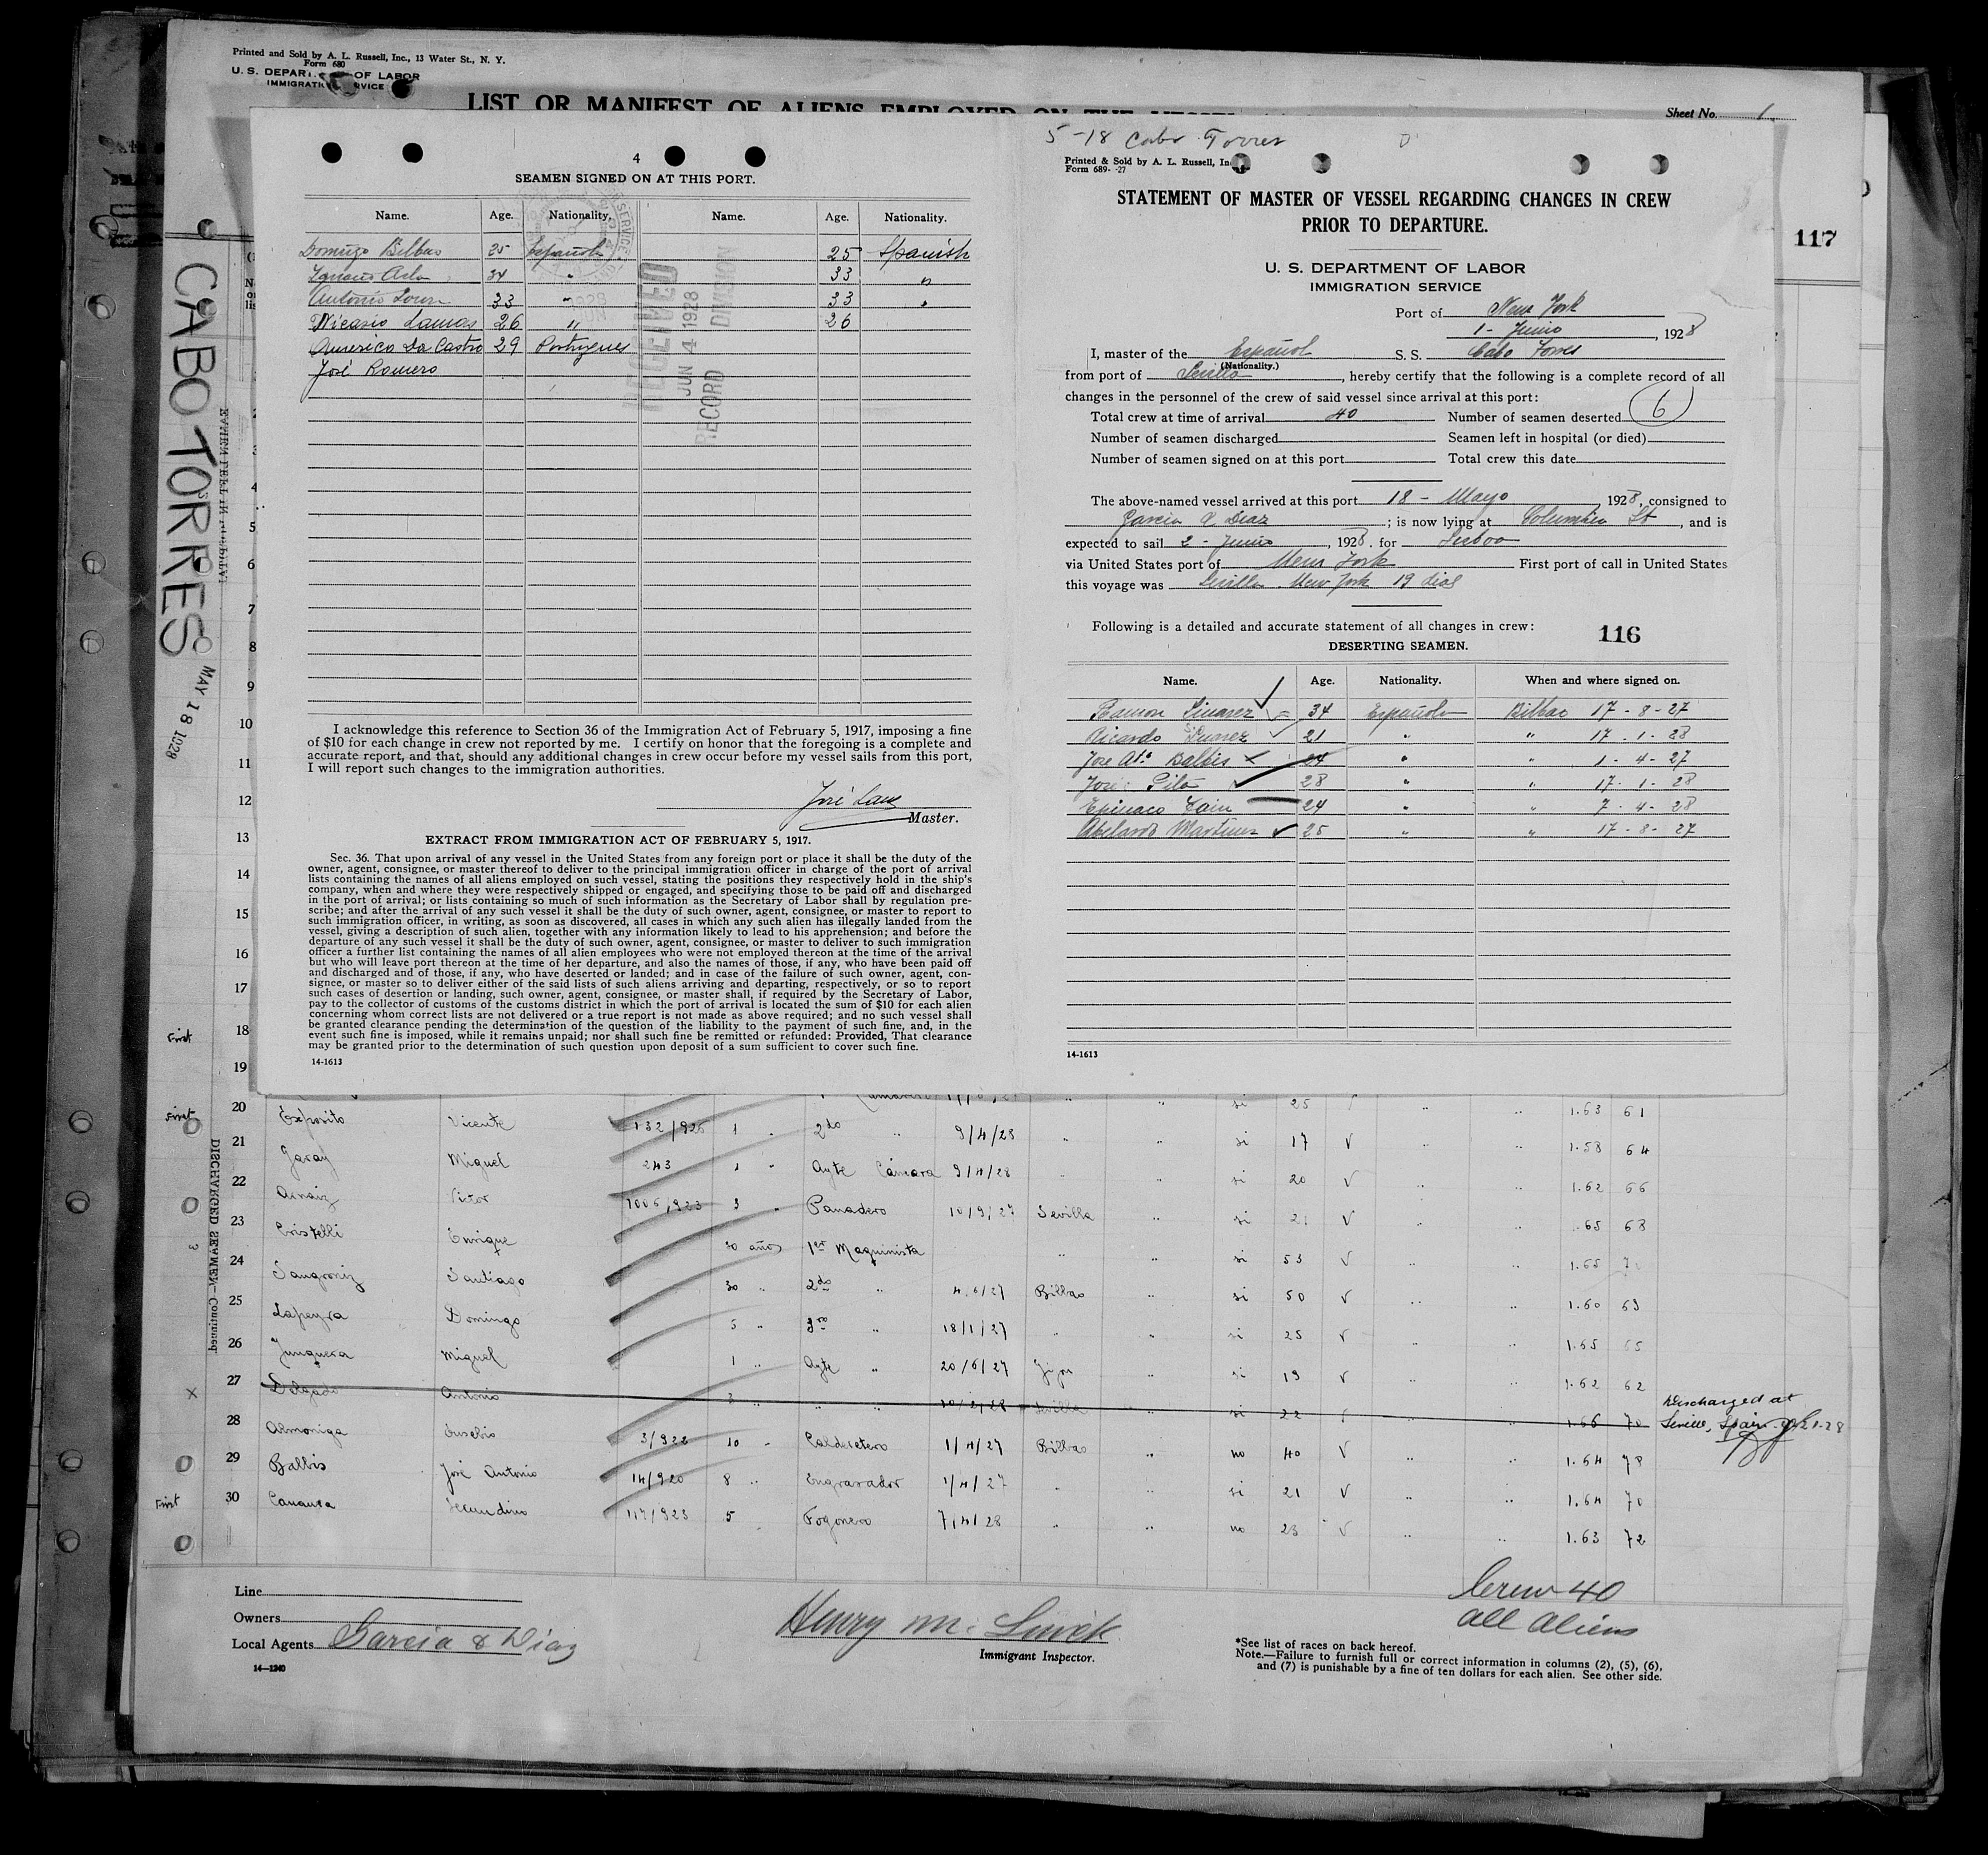 Printed and Sold by A. L. Russell, Inc., 13 Water St., N. Y.
Form 680
U. S. DEPAR OF LABOR
IMMIGRATI RVICE
LIST OR MANIFEST OF ALIENS EMPLOYED ON THE VESSEL
Sheet No. 1
117
CABO TORRES
MAY 18 1928
4
SEAMEN SIGNED ON AT THIS PORT.
Name. Age. Nationality. Name. Age. Nationality.
Domingo Bilbao 35 Española 25 Spanish
Ignacio 34 " 33 "
Antonio 33 " 33 "
Nicasio Lamas 26 " 26
Americo Da Castro 29 Portugues
José Romero
RECEIVED
JUN 4 1928
RECORD DIVISION
I acknowledge this reference to Section 36 of the Immigration Act of February 5, 1917, imposing a fine
of $10 for each change in crew not reported by me. I certify on honor that the foregoing is a complete and
accurate report, and that, should any additional changes in crew occur before my vessel sails from this port,
I will report such changes to the immigration authorities.
José
Master.
EXTRACT FROM IMMIGRATION ACT OF FEBRUARY 5, 1917.
Sec. 36. That upon arrival of any vessel in the United States from any foreign port or place it shall be the duty of the
owner, agent, consignee, or master thereof to deliver to the principal immigration officer in charge of the port of arrival
lists containing the names of all aliens employed on such vessel, stating the positions they respectively hold in the ship's
company, when and where they were respectively shipped or engaged, and specifying those to be paid off and discharged
in the port of arrival; or lists containing so much of such information as the Secretary of Labor shall by regulation pre-
scribe; and after the arrival of any such vessel it shall be the duty of such owner, agent, consignee, or master to report to
such immigration officer, in writing, as soon as discovered, all cases in which any such alien has illegally landed from the
vessel, giving a description of such alien, together with any information likely to lead to his apprehension; and before the
departure of any such vessel it shall be the duty of such owner, agent, consignee, or master to deliver to such immigration
officer a further list containing the names of all alien employees who were not employed thereon at the time of the arrival
but who will leave port thereon at the time of her departure, and also the names of those, if any, who have been paid off
and discharged and of those, if any, who have deserted or landed; and in case of the failure of such owner, agent, con-
signee, or master so to deliver either of the said lists of such aliens arriving and departing, respectively, or so to report
such cases of desertion or landing, such owner, agent, consignee, or master shall, if required by the Secretary of Labor,
pay to the collector of customs of the customs district in which the port of arrival is located the sum of $10 for each alien
concerning whom correct lists are not delivered or a true report is not made as above required; and no such vessel shall
be granted clearance pending the determination of the question of the liability to the payment of such fine, and, in the
event such fine is imposed, while it remains unpaid; nor shall such fine be remitted or refunded: Provided, That clearance
may be granted prior to the determination of such question upon deposit of a sum sufficient to cover such fine.
14-1613
5-18 Cabo Torres
Printed & Sold by A. L. Russell, In
Form 689- -27
STATEMENT OF MASTER OF VESSEL REGARDING CHANGES IN CREW
PRIOR TO DEPARTURE.
U. S. DEPARTMENT OF LABOR
IMMIGRATION SERVICE
Port of New York
1 - Junio, 1928
I, master of the Español S. S. Cabo Torres
(Nationality.)
from port of Sevilla, hereby certify that the following is a complete record of all
changes in the personnel of the crew of said vessel since arrival at this port:
Total crew at time of arrival 40 Number of seamen deserted 6
Number of seamen discharged Seamen left in hospital (or died)
Number of seamen signed on at this port Total crew this date
The above-named vessel arrived at this port 18 - Mayo 1928, consigned to
Garcia & Diaz; is now lying at Columbia St, and is
expected to sail 2 - Junio, 1928. for Lisboa
via United States port of New York First port of call in United States
this voyage was Sevilla New York 19 dias
Following is a detailed and accurate statement of all changes in crew:
116
DESERTING SEAMEN.
Name. Age. Nationality. When and where signed on.
Ramon 34 Española Bilbao 17 - 8 - 27
Ricardo 21 " " 17 - 1 - 28
Jose Ato Balbis 24 " " 1 - 4 - 27
José 28 " " 17 - 1 - 28
24 " " 7 - 4 - 28
Abelardo Martinez 25 " " 17 - 8 - 27
14-1613
4
5
6
7
8
9
10
11
12
13
14
15
16
17
First 18
19
20
si 25 1.63 61
First Exposito Vicente 132/926 1 " 2do " 9/4/28 " " si 17 V " " 1.58 64
21 Garay Miguel 243 1 " Ayte Cámara 9/4/28 " si 20 V " " 1.62 66
22 Arnaiz Victor 1006/923 3 " Panadero 10/9/27 Sevilla " si 21 V " " 1.65 68
23 Cristelli Enrique 30 años 1er Maquinista " si 53 V " " 1.65
24 Sangroniz Santiago 30 " 2do " 4/6/27 Bilbao " si 50 V " " 1.60 63
25 Lapeyra Domingo 5 " 3ro " 18/1/27 " " si 25 V " " 1.65 65
26 Junquera Miguel 1 " Ayte " 20/6/27 Gijon " si 19 V " " 1.62 62
27 Delgado Antonio " " " Sevilla " si 22 1.66 70
Discharged at
Seville, Spain
28 Armoniga Eusebio 3/922 10 " Calderetero 1/4/27 Bilbao " no 40 V " " 1.64 78
29 Balbis José Antonio 14/920 8 " Engrasador 1/4/27 " " si 21 V " " 1.64 70
First 30 Secundino 117/923 5 " Fogonero 7/4/28 " " no 23 V " " 1.63 72
DISCHARGED SEAMEN—Continued.
Line
Owners
Local Agents Garcia & Diaz
14—1240
Henry M.
Immigrant Inspector.
Crew 40
all aliens
*See list of races on back hereof.
Note.—Failure to furnish full or correct information in columns (2), (5), (6),
and (7) is punishable by a fine of ten dollars for each alien. See other side.